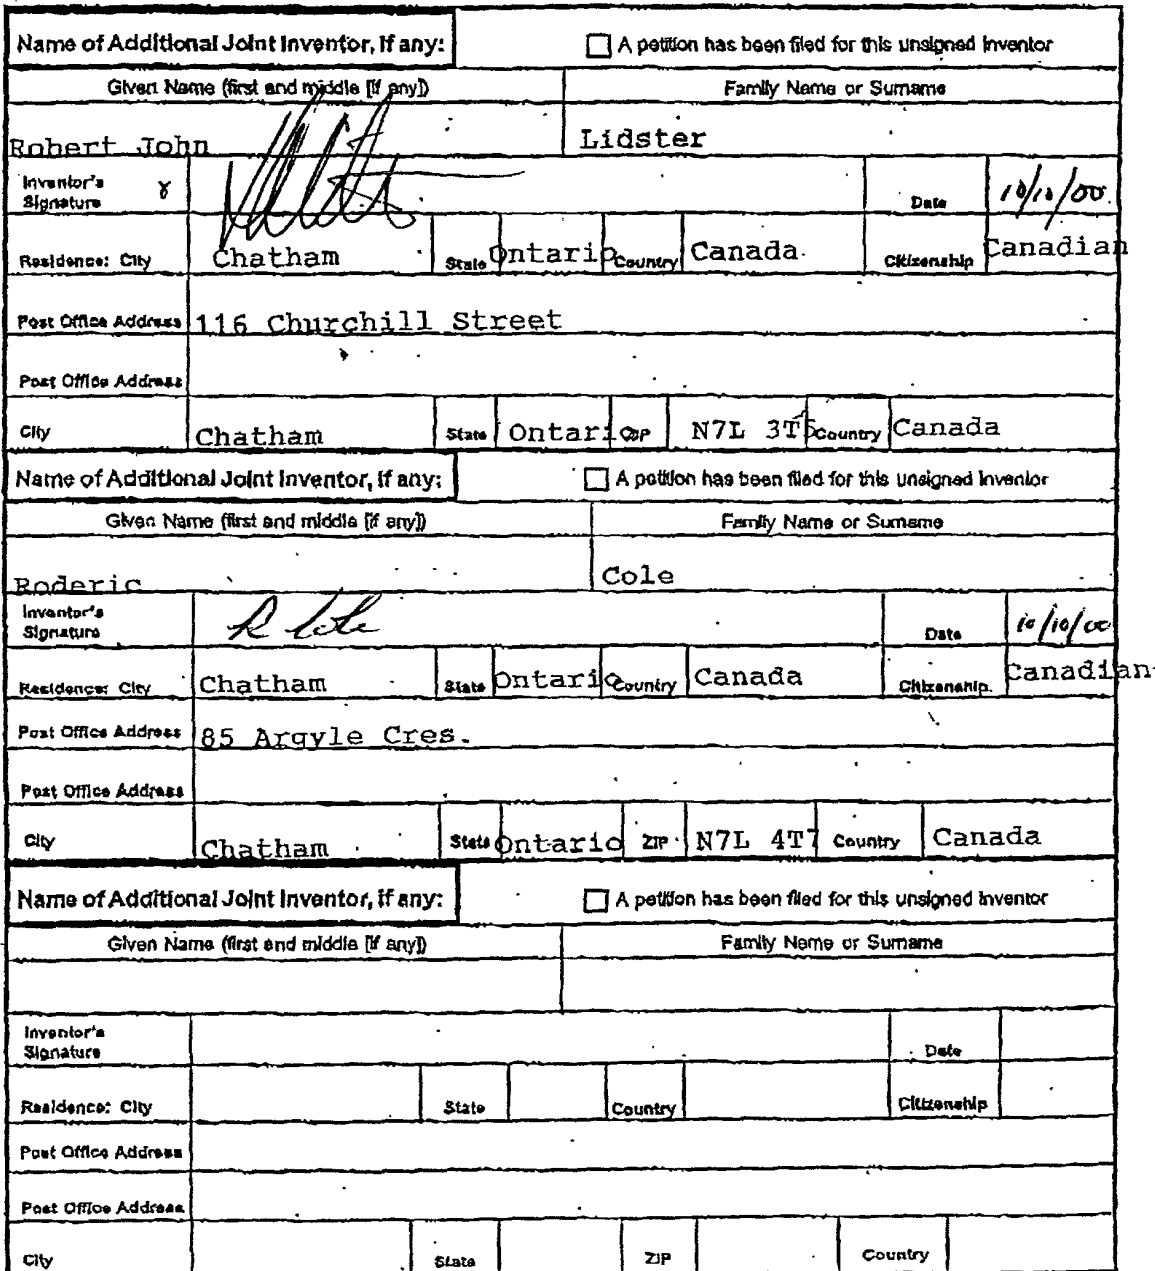 Name of Additional Joint Inventor, if any: A petition has been filed for this unsigned inventor
Given Name (first and middle [if any]) Family Name or Surname
Robert John Lidster
Inventor's Signature Date 10/10/00
Residence: City Chatham State Ontario Country Canada Citizenship Canadian
Post Office Address 116 Churchill Street
Post Office Address
City Chatham State Ontario ZIP N7L 3T5 Country Canada
Name of Additional Joint Inventor, if any: A petition has been filed for this unsigned inventor
Given Name (first and middle [if any]) Family Name or Surname
Roderic Cole
Inventor's Signature R Cole Date 10/10/00
Residence: City Chatham State Ontario Country Canada Citizenship Canadian
Post Office Address 85 Argyle Cres.
Post Office Address
City Chatham State Ontario ZIP N7L 4T7 Country Canada
Name of Additional Joint Inventor, if any: A petition has been filed for this unsigned inventor
Given Name (first and middle [if any]) Family Name or Surname
Inventor's Signature Date
Residence: City State Country Citizenship
Post Office Address
Post Office Address
City State ZIP Country